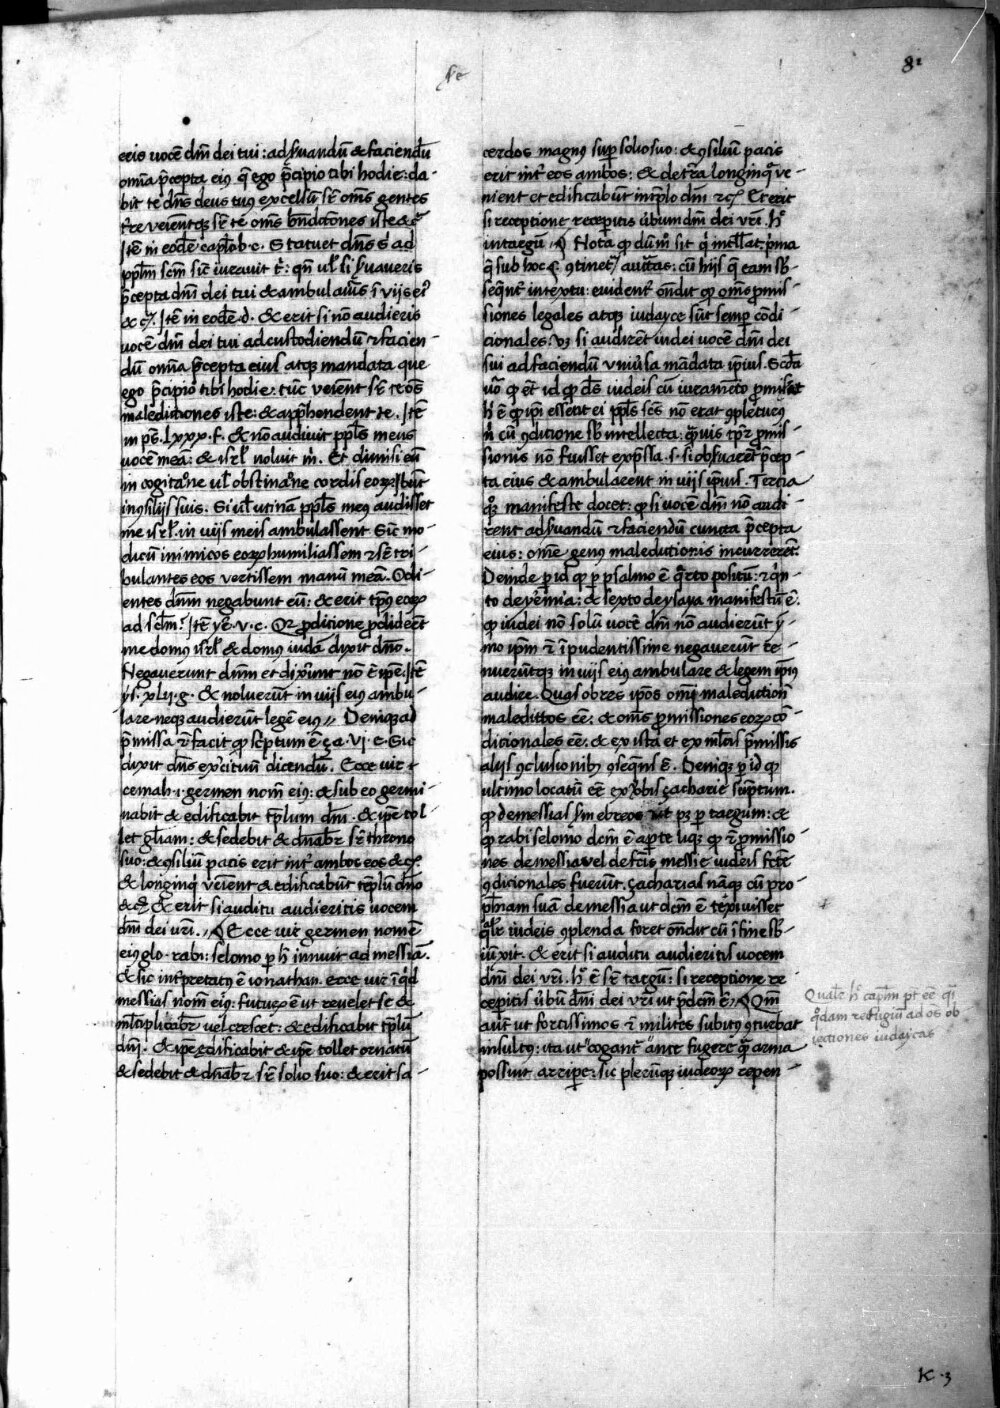 82
eris vocē dn̄i dei tui: ad ẜuandū & faciendū
om̄ia p̄cepta eiꝰ q̄ ego p̄cipio tibi hodie: da-
bit te dn̄s deus tuꝰ excelsū sr̄ om̄s gentes
t̄re veīentqꝫ sr̄ te om̄s bn̄dctōnes iste &c̄
Itē in eodē capl̓o b. c. Statuet dn̄s s̓ ad
ppl̓m scm̄ sic̄ iuravit t̓: qn̄ ul̓ si ẜuaveris
p̄cepta dn̄i dei tui & ambulavīs ī vijs ei᷒
& c̄. Itē in eodē. d. & erit si nō audieris
vocē dn̄i dei tui ad custodiendū & facien-
dū om̄ia p̄cepta eius atqꝫ mandata que
ego p̄cipio tibi hodie: tūc veīent sr̄ te oēs
maledictiones iste: & appr̄hendent te. Itē
in ps̄. lxxx. f. & nō audivit ppl̓s meus
vocē meā: & isrl̓ noluit m̓. Et dimisi eū
in cogitat̓oe ul̓ obstinat̓oe cordis eoꝝ: ibūt
in ꝯsilijs suis. Si ul̓ utinā ppl̓s meꝰ audisset
me isrl̓. in vijs meis ambulassent Sic̄ mo-
dicū inimicos eoꝝ humiliassem & sr̄ tri-
bulantes eos vertissem manū meā. Odi-
entes dn̄m negabunt eū: & erit tp̄ꝰ eoꝝ
ad sclm̄. Itē ye. v. c. Qꝛ p̱dictione p̱cliderēt
me domꝰ isrl̓ & domꝰ iudā dixit dn̄o.
Negaverunt dn̄m et dixūnt nō ē ip̄e. Itē
ys. xlij. g. & noluerūt in vijs eiꝰ ambu-
lare neqꝫ audierūt legē eiꝰ // Deniqꝫ ad
p̄missa &̓ facit qđ sc̄ptum ē ça. vj. c. Sic
dixit dn̄s ex̓cituū dicendū. Ecce vir
cemah .i. germen nom̄ eiꝰ: & sub eo germi-
nabit & edificabit tēplum dn̄i. & ip̄e tol-
let gl̓iam: & sedebit & dn̄abr̄ sr̄ throno
suo: & ꝯsiliū pacis erit int̓ ambos eos & c̄.
& longinq̓ veīent & edificabūt tēplū dn̄o
& c̄. & erit si auditu audieritis vocem
dn̄i dei vr̄i. // ¶ Ecce vir germen nomē
eiꝰ glo. rabi: selomo p̱ h̓ innuit ad messiā.
& sic int̓pretatꝰ ē ionathan. ecce vir īq̓d
messias nom̄ eiꝰ: futurꝰ ē ut revelet̓ se &
ml̓tiplicabr̄ vel crescet: & edificabit tēplū
dn̄i. & ip̄e edificabit & ip̄e tollet ornatū
& sedebit & dn̄abr̄ sr̄ solio suo: & erit sa-
cerdos magnꝰ sup̱ solio suo: & ꝯsiliū pacis
erit int̓ eos ambos: & de tr̄a longinq̓ ve-
nient et edificabūt in tēplo dn̄i & c̄ Et erit
si receptione receperitis ūbum dn̄i dei vr̄i. h̓
in targū // ¶ Nota qđ sit q̓ intellat. p̓ma
q̄ sub hoc § ꝯtinet̓ auctas: cū hijs q̄ eam sb̄-
seqn̄t̓ in textu: evident̓ on̄dit qđ om̄s p̱mis-
siones legales atqꝫ iudayce sūt semp̱ cōdi-
cionales. vꝫ si audirēt iudei vocē dn̄i dei
sui ad faciendū univ̓sa mādata ip̄ius. Scđa
v̓o qđ et̓ id qđ dꝰ iudeis cū iuramēto p̱misit
h̓ ē qđ ip̄i essent ei ppl̓s scs̄ nō erat ꝯpleturꝰ
n̓ cū ꝯditione sb̄ intellecta: q̄uis tp̱r̄ p̱mis-
sionis nō fuisset exp̄ssa. s. si obẜuarēt p̄cep-
ta eius & ambularent in vijs ip̄ius. Tercia
qꝫ manifeste docet: qđ si vocē dn̄i nō audi-
rent ad ẜuandū & faciendū cuncta p̄cepta
eius: om̄e genꝰ maledictionis incurrerēt.
Deinde p̱ id qđ p̱ psalmo ē q̄rto positū: & q̓n-
to de yēmia: & sexto de ysaya manifestū ē.
qđ iudei nō solū vocē dn̄i nō audierūt ȳ-
mo ip̄m & īpudentissime negaverūt re-
nuerūtqꝫ in vijs eiꝰ ambulare & legem ip̄iꝰ
audire. Quas ob res ip̄os om̄i maledictionē
maledictos eē: & om̄s p̱missiones eoꝝ cō-
dicionales eē. & ex ista et ex ml̓tis p̄missis
alijs ꝯclusionibꝰ ꝯseqn̄s ē. Deniqꝫ p̱ id qđ
ultimo locatū eē ex ūbis çacharie sūptum.
qđ de messias sm̄ ebreos ut pꝫ p̱ targum: &
qđ rabi selomo dcm̄ ē ap̱te liqꝫ qđ & p̱missio-
nes de messia vel de fc̄is messie iudeis fc̄te
ꝯdicionales fuerūt. çacharias nāqꝫ cū pro-
ph̄iam suā de messia ut dcm̄ ē tēxuisset
q̄lr̄ iudeis ꝯplenda foret on̄dit cū ī fine sb̄-
iūxit. & erit si auditu audieritis vocem
dn̄i dei vr̄i. h̓ ē sr̄ targū: si receptione re-
ceperitis ūbū dn̄i dei vr̄i ut p̄dcm̄ ē. // ¶ Qm̄
aut̄ ut fortissimos & milites subitꝰ ꝯturbat
insultꝰ: ita ut cogant̓ ante fugere q̄ arma
possint arripe̱: sic plerūqꝫ iudeoꝝ repen-
Qual̓r h̓ capl̓m pt̄ eē q̓i
q̓dam refugiū ad os ob
iectiones iudaycas
K . 3